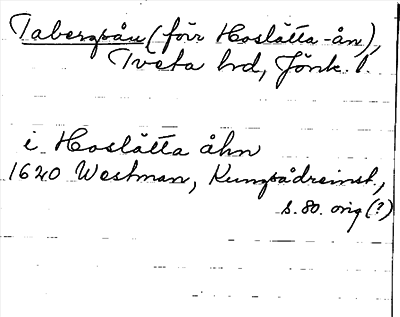 Tabergsån (förr Hoslätta-ån),
Tveta hd, Jönk. l.
i Hoslätta åhn
1620 Westman, Kungsådreinst.,
s. 80. orig (?)